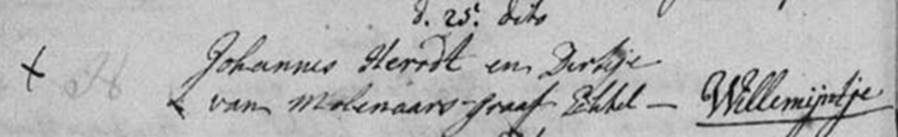 d. 25. dito
Johannes Herodt en Dirkije
van Molenaars-graaf Ehhel — Willemijntje